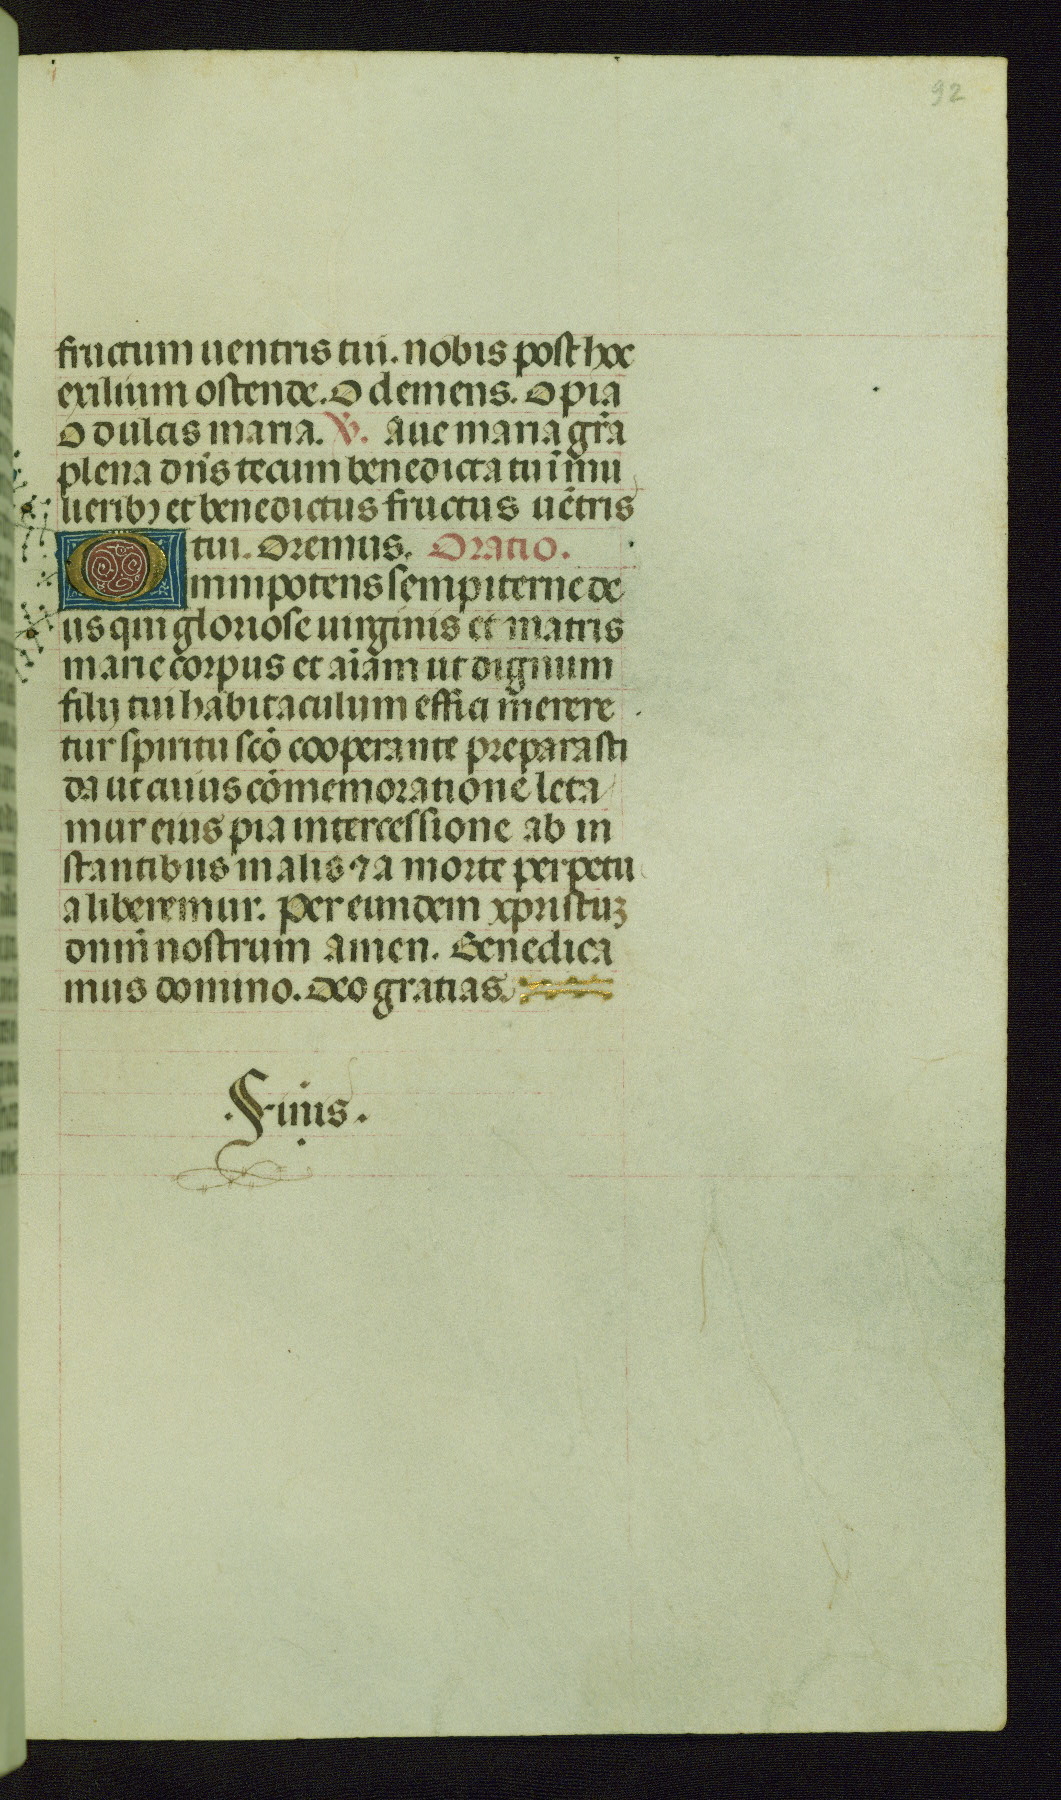 92
fructum uentris tui. nobis post hoc
exilium ostende. O clemens. O pia
O dulcis maria. V. Aue maria gr̃a
plena dn̄s tecum benedicta tu ī mu
lieribꝫ et benedictus fructus uētris
tui. Oremus. Oratio.
Omnipotens sempiterne de
us qui gloriose uirginis et matris
marie corpus et aīam ut dignum
filij tui habitaculum effici mere re
tur spiritu scō cooperante preparasti
da ut cuius cōmemoratione leta
mur eius pia intercessione ab in
stantibus malis ⁊ a morte perpetu
a liberemur. Per eundem xpristuꝫ
dnm̄ nostrum amen. Benedica
mus domino. Deo gratias.
.Finis.